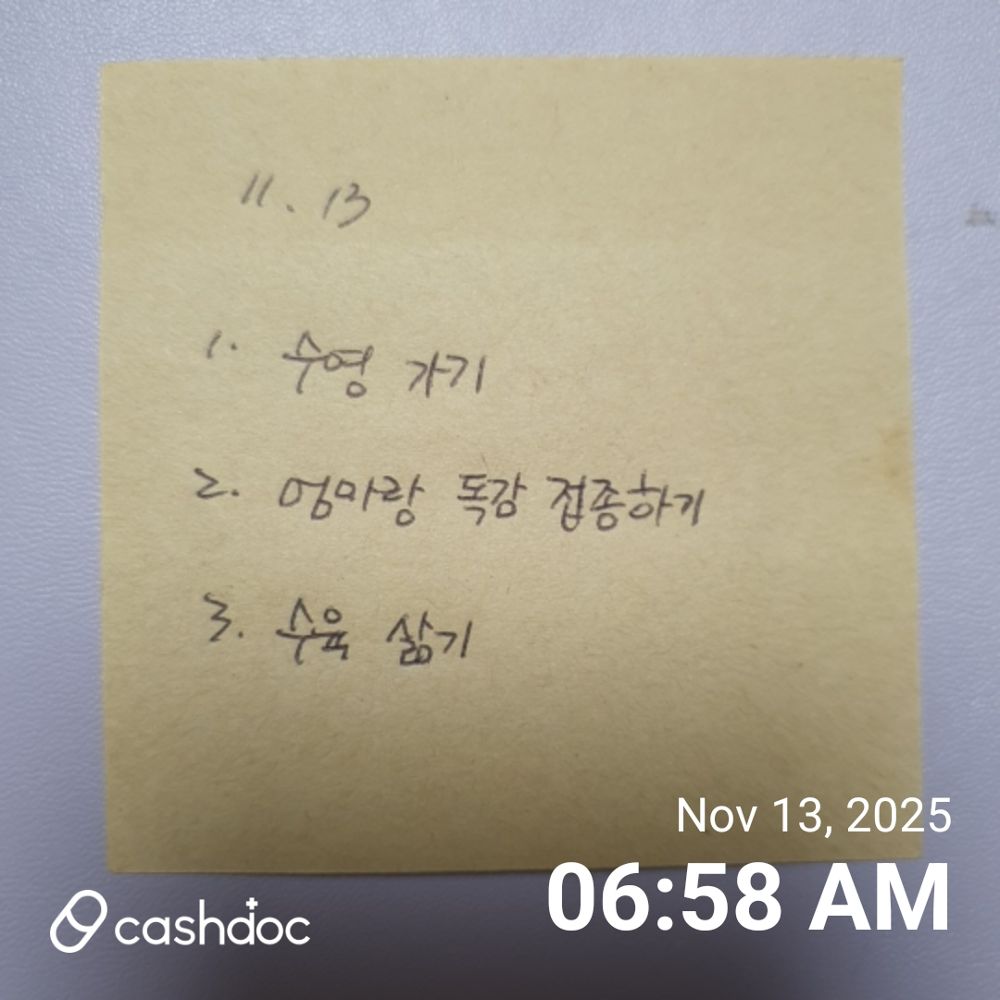 11. 13
1. 수영 가기
2. 엄마랑 독감 접종하기
3. 수육 삶기
Nov 13, 2025
06:58 AM
cashdoc